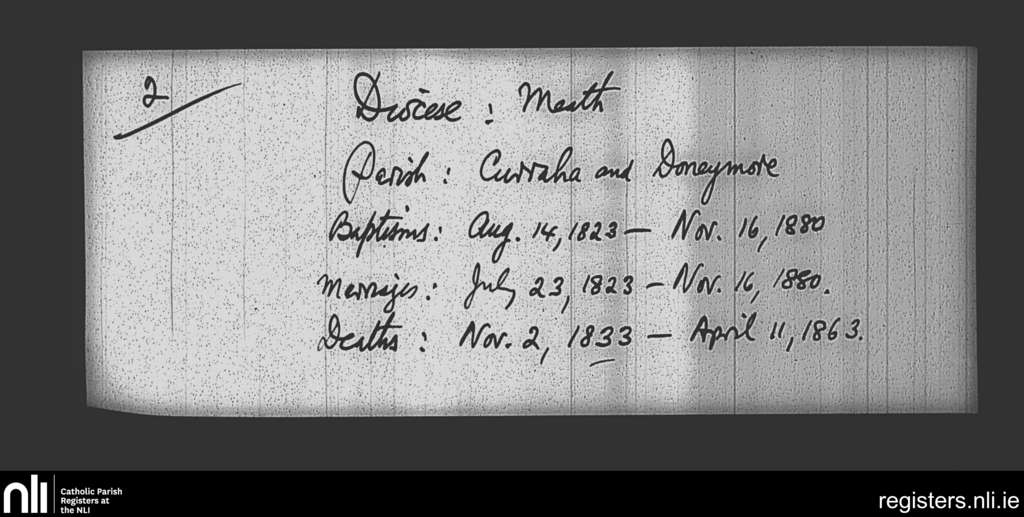 2
Diocese : Meath
Parish : Curraha and Doneymore
Baptisms : Aug. 14, 1823 — Nov. 16, 1880
Marriages : July 23, 1823 — Nov. 16, 1880.
Deaths : Nov. 2, 1833 — April 11, 1863.
nli
Catholic Parish
Registers at
the NLI
registers.nli.ie